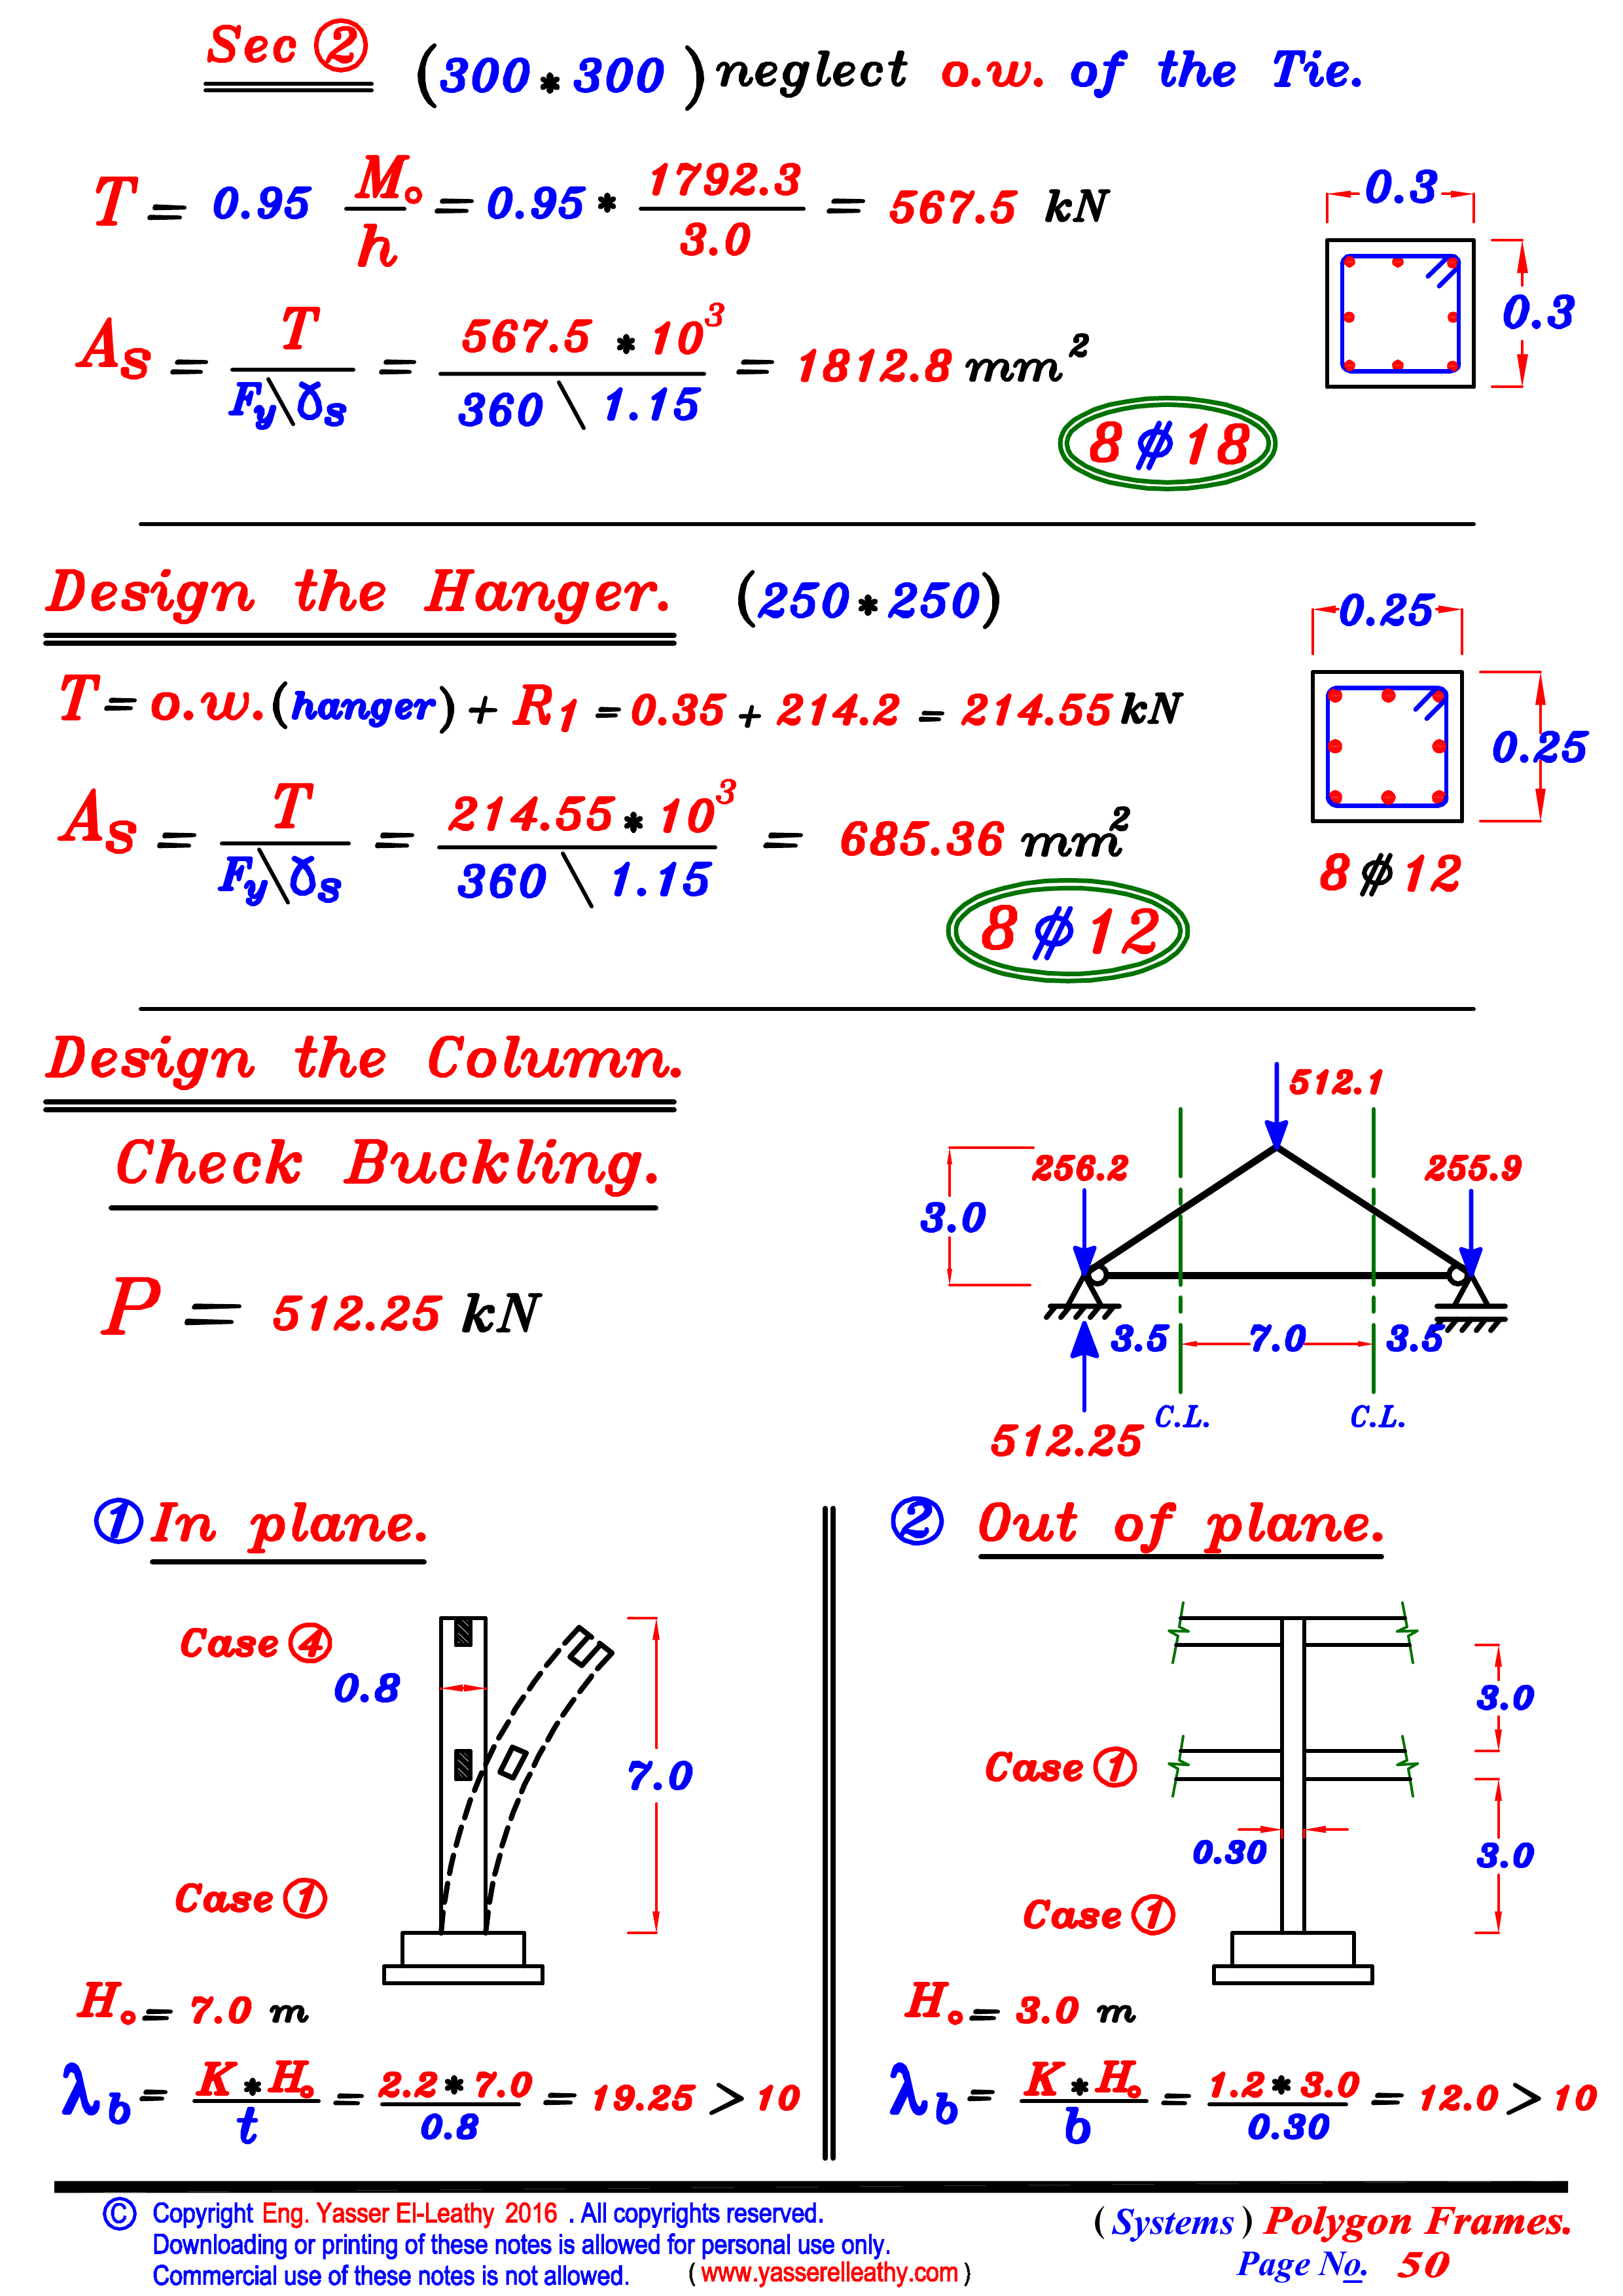 Sec ② (300 * 300) neglect o.w. of the Tie.
T = 0.95 M₀ / h = 0.95 * 1792.3 / 3.0 = 567.5 kN
0.3
0.3
As = T / (Fy \ ɣs) = 567.5 * 10³ / (360 \ 1.15) = 1812.8 mm²
8 ⌽ 18
Design the Hanger. (250 * 250)
0.25
T = o.w. (hanger) + R1 = 0.35 + 214.2 = 214.55 kN
0.25
As = T / (Fy \ ɣs) = 214.55 * 10³ / (360 \ 1.15) = 685.36 mm²
8 ⌽ 12
8 ⌽ 12
Design the Column.
Check Buckling.
P = 512.25 kN
512.1
256.2
255.9
3.0
3.5 7.0 3.5
C.L. C.L.
512.25
① In plane.
Case ④
0.8
7.0
Case ①
H₀ = 7.0 m
λb = K * H₀ / t = 2.2 * 7.0 / 0.8 = 19.25 > 10
② Out of plane.
3.0
Case ①
0.30
3.0
Case ①
H₀ = 3.0 m
λb = K * H₀ / b = 1.2 * 3.0 / 0.30 = 12.0 > 10
© Copyright Eng. Yasser El-Leathy 2016 . All copyrights reserved.
Downloading or printing of these notes is allowed for personal use only.
Commercial use of these notes is not allowed. ( www.yasserelleathy.com )
( Systems ) Polygon Frames.
Page No. 50